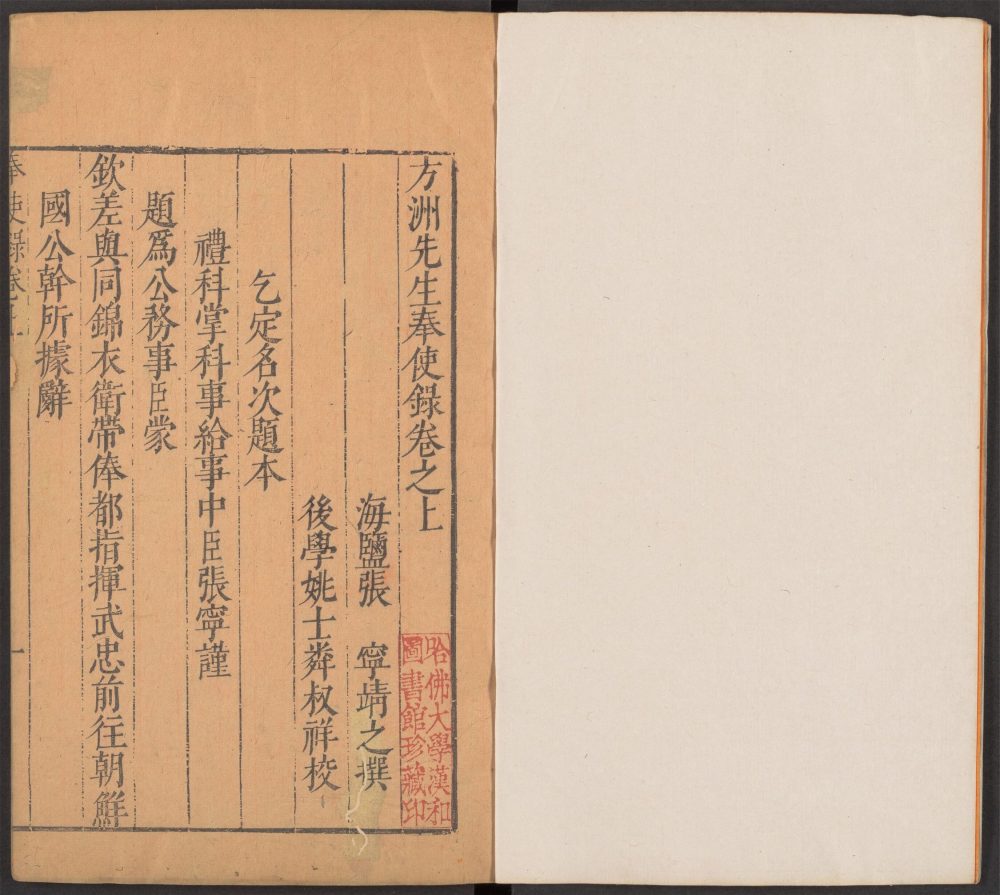 方洲先生奉使錄卷之上
海鹽張 寧靖之撰
後學姚士粦叔祥校
乞定名次題本
禮科掌科事給事中臣張寧謹
題爲公務事臣蒙
欽差與同錦衣衛帶俸都指揮武忠前往朝鮮
國公幹所據辭
奉使錄卷之上
一
哈佛大學漢和
圖書館珍藏印